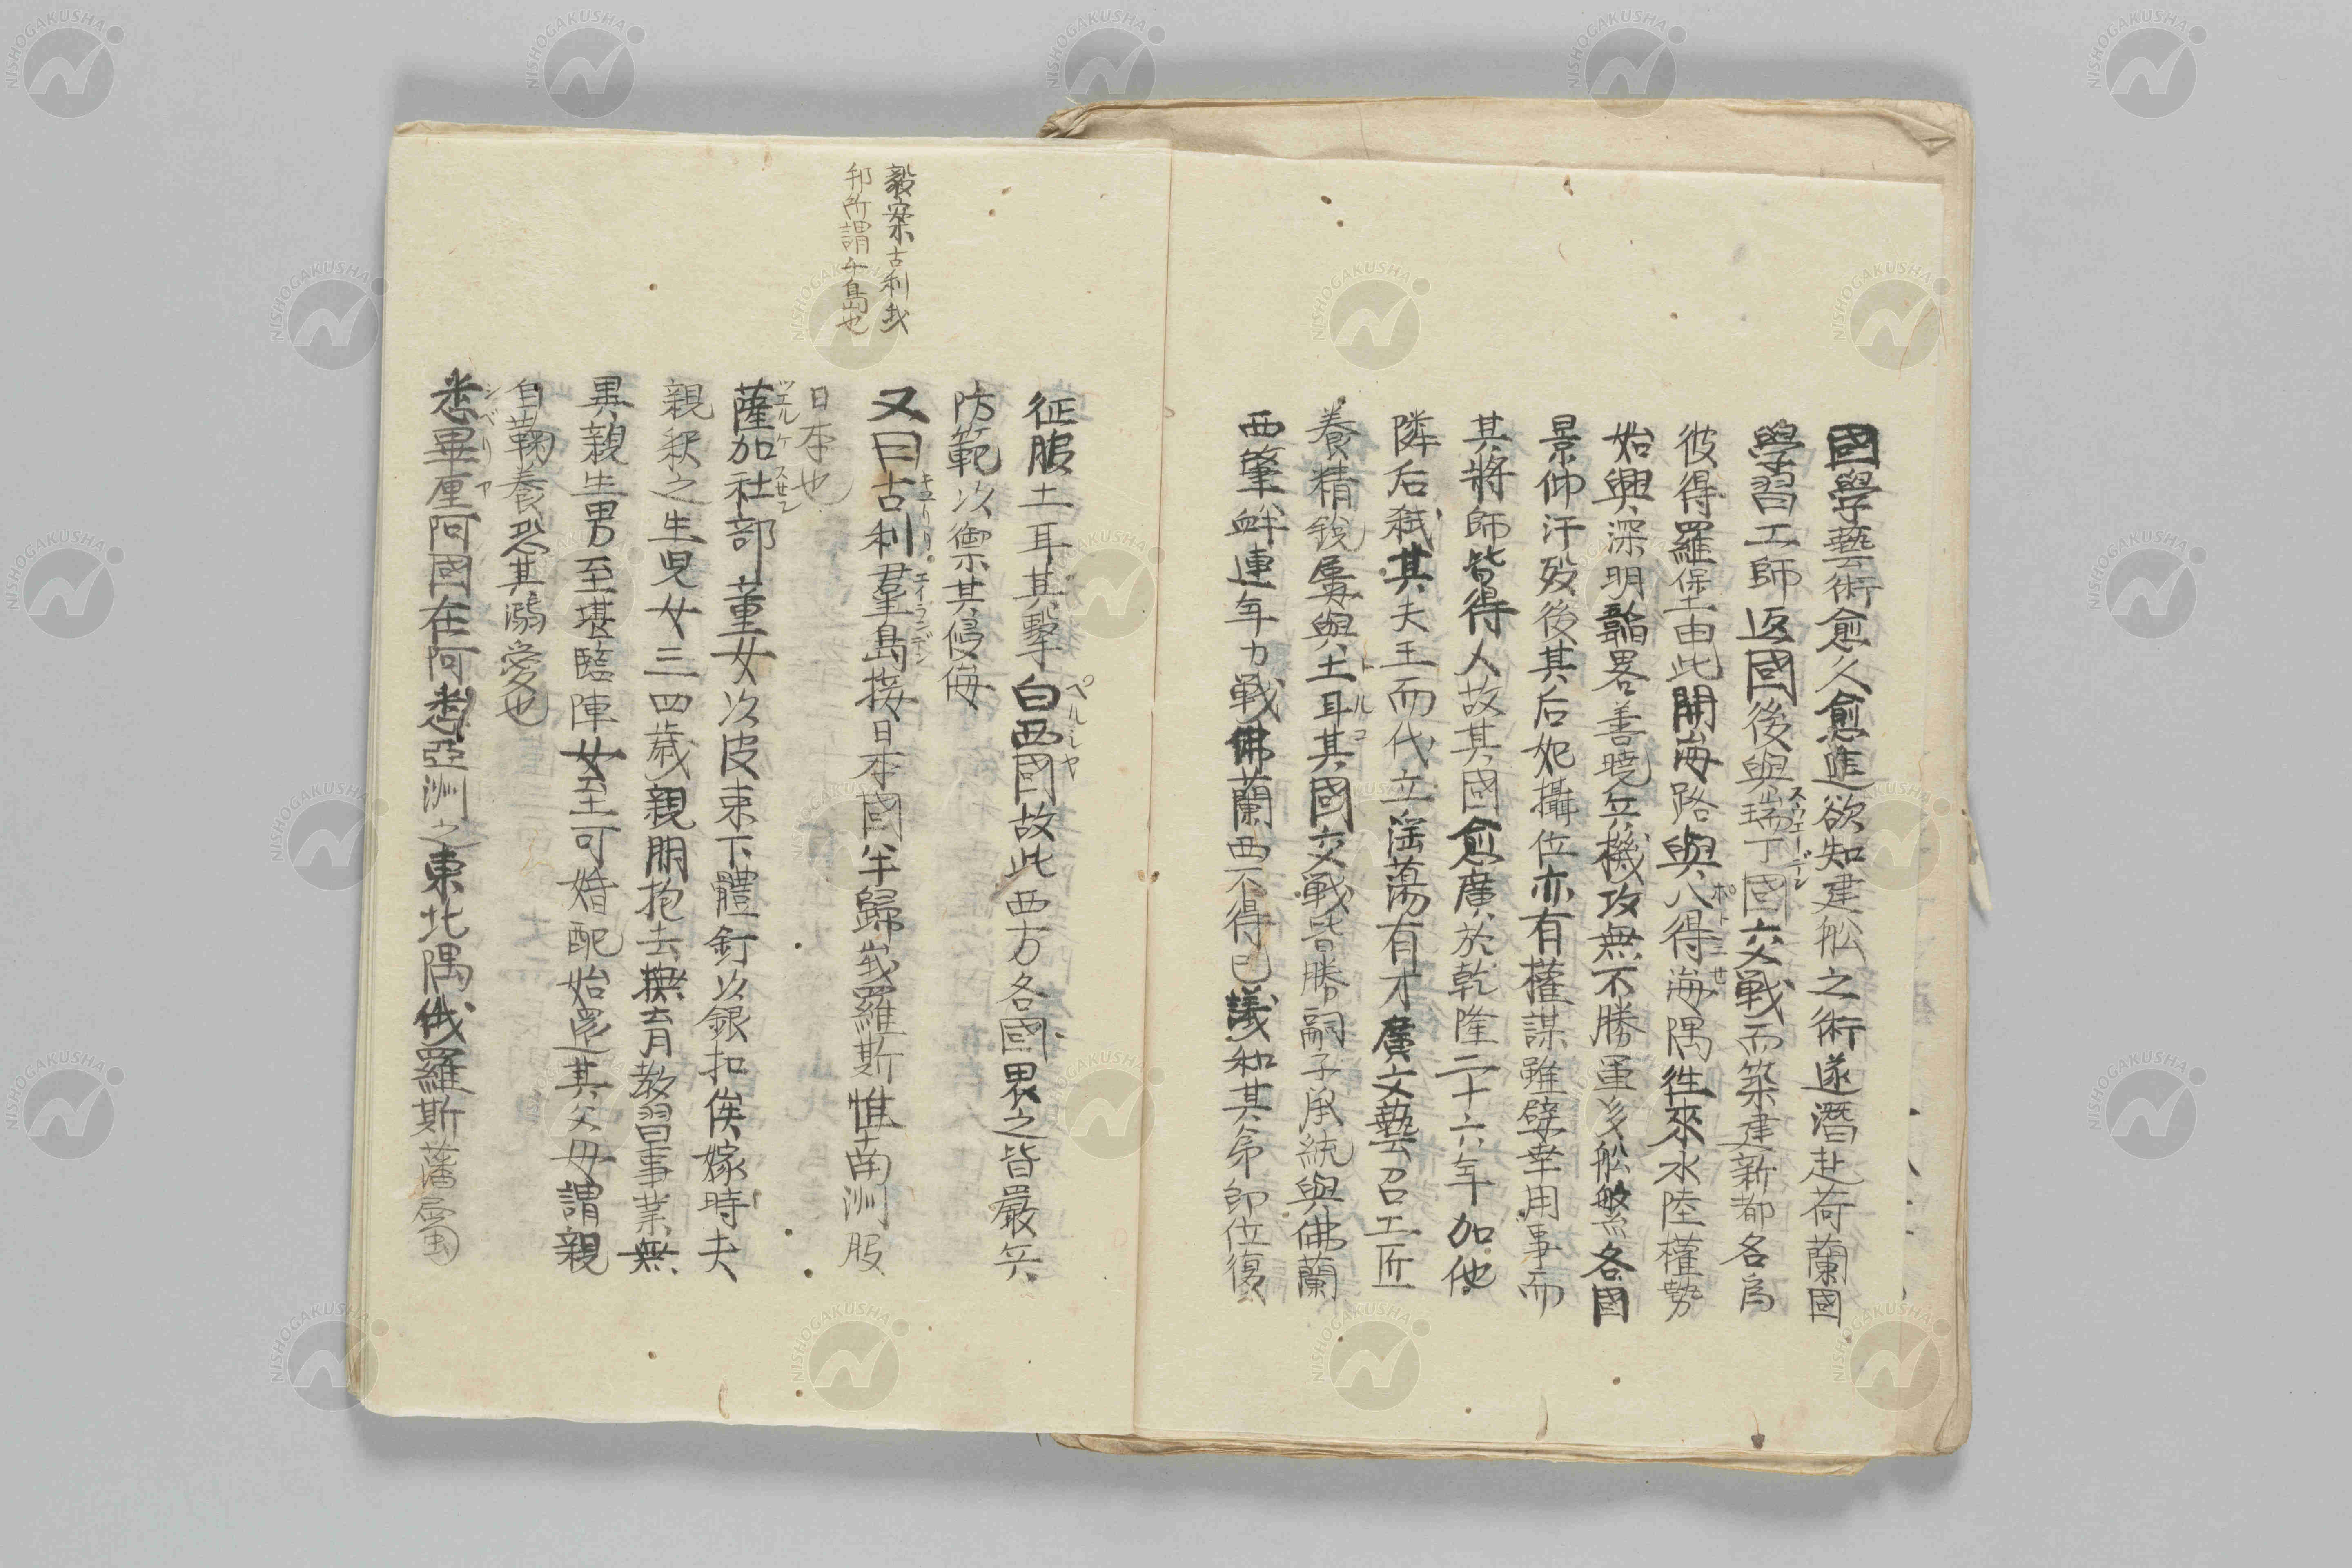 國學藝術愈久愈進欲知建舩之術遂潛赴荷蘭國
學習工師返國後與瑞丁國交戰而築建新都名爲
スウエーデン
彼得羅堡由此開海路與八得海隅徃來水陸權勢
ポトニセ
始興深明韜畧善曉兵機攻無不勝虽多舩繁各國
景仰汗歿後其后妃攝位亦有權謀雖嬖幸用事而
其將師皆得人故其國愈廣於乾隆二十六年加他
隣后弒其夫王而代立淫蕩有才廣文藝召工匠
養精銳屢與土耳其國交戰皆勝嗣子承統與佛蘭
トルコ
西肇衅連年力戰佛蘭西不得已議和其弟卽位復
征服土耳其擊白西國故此西方各國畏之皆嚴兵
ペルシヤ
防範以禦其侵侮
毅案古利我
邦所謂千島也
又曰古利羣島接日本國半歸峩羅斯惟南洲服
キユリリ エイランデン
日本也
薩加社部董女次皮束下體釘以銀扣俟嫁時夫
ツエルケスセン
親釈之生児女三四歳親朋抱去撫育教習事業無
異親生男至堪臨陣女至可婚配始還其父母謂親
自鞠養恐其溺愛也
悉畢厘阿國在阿悉亞洲之東北隅俄羅斯藩属
シベリア